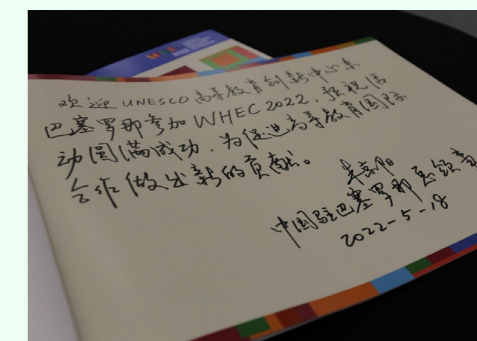 欢迎 UNESCO 高等教育创新中心来
巴塞罗那参加 WHEC 2022，预祝活
动圆满成功，为促进高等教育国际
合作做出新的贡献。
中国驻巴塞罗那总领事
2022-5-18
2022